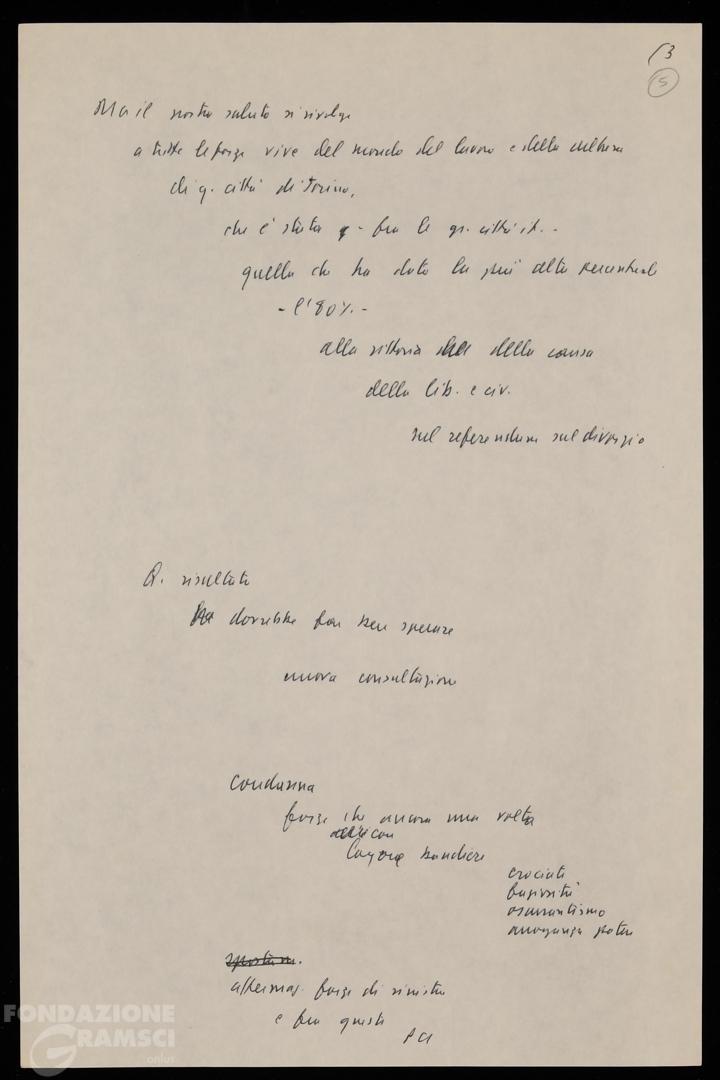 13
5
Ma il nostro saluto si rivolge
a tutte le forze vive del mondo del lavoro e della cultura
di q. città di Torino,
che è stata - fra le gr. città it. -
quella che ha dato la più alta percentuale
- l'80%. -
alla vittoria della causa
della lib. e civ.
nel referendum sul divorzio
Q. risultato
dovrebbe far ben sperare
nuova consultazione
Condanna
forze che ancora una volta
con
logore bandiere
crociate
faziosità
oscurantismo
arroganza potere
affermaz. forze di sinistra
e fra queste
PCI
FONDAZIONE
GRAMSCI
onlus